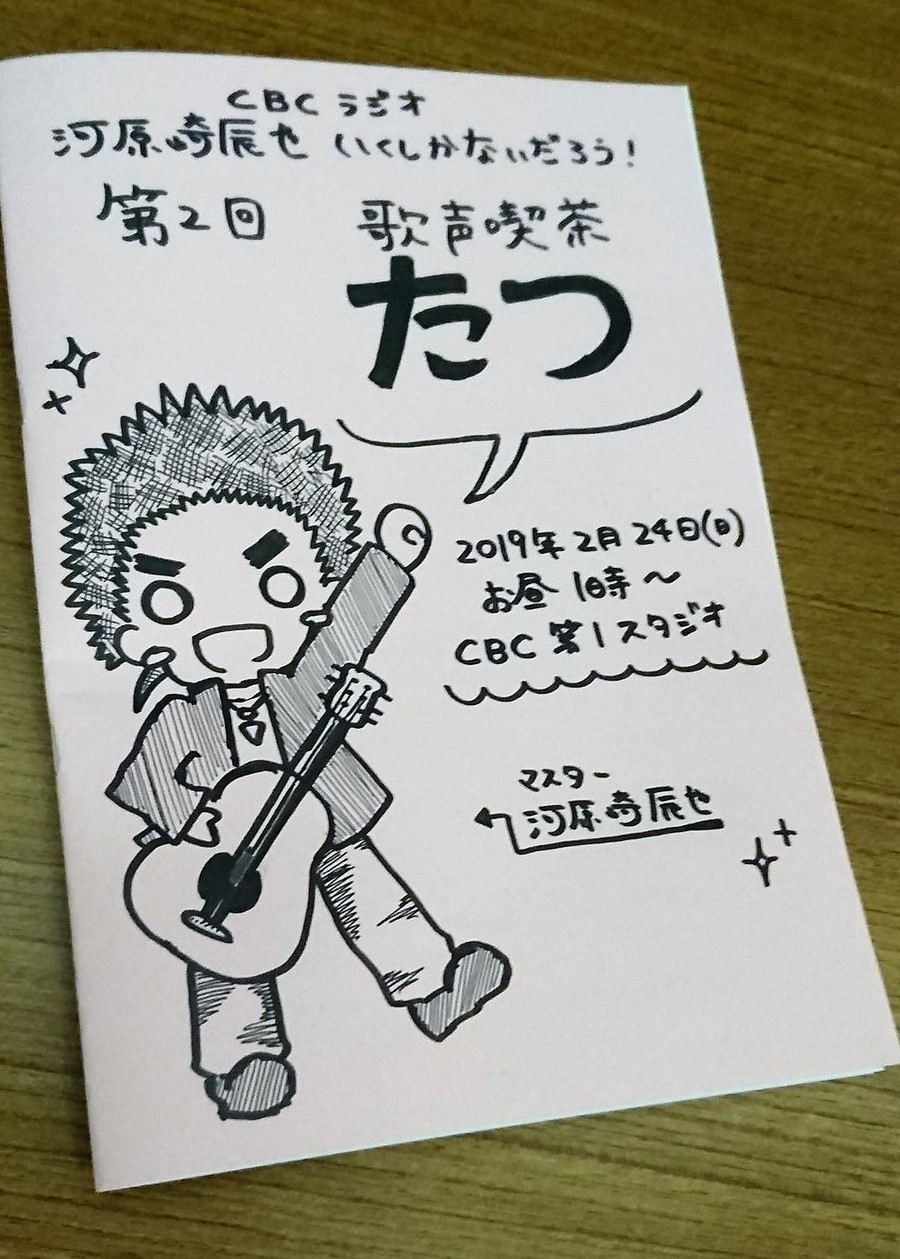 CBCラジオ
河原崎辰也 いくしかないだろう！
第2回 歌声喫茶
たつ
2019年2月24日(日)
お昼 1時〜
CBC 第1スタジオ
マスター
河原崎辰也